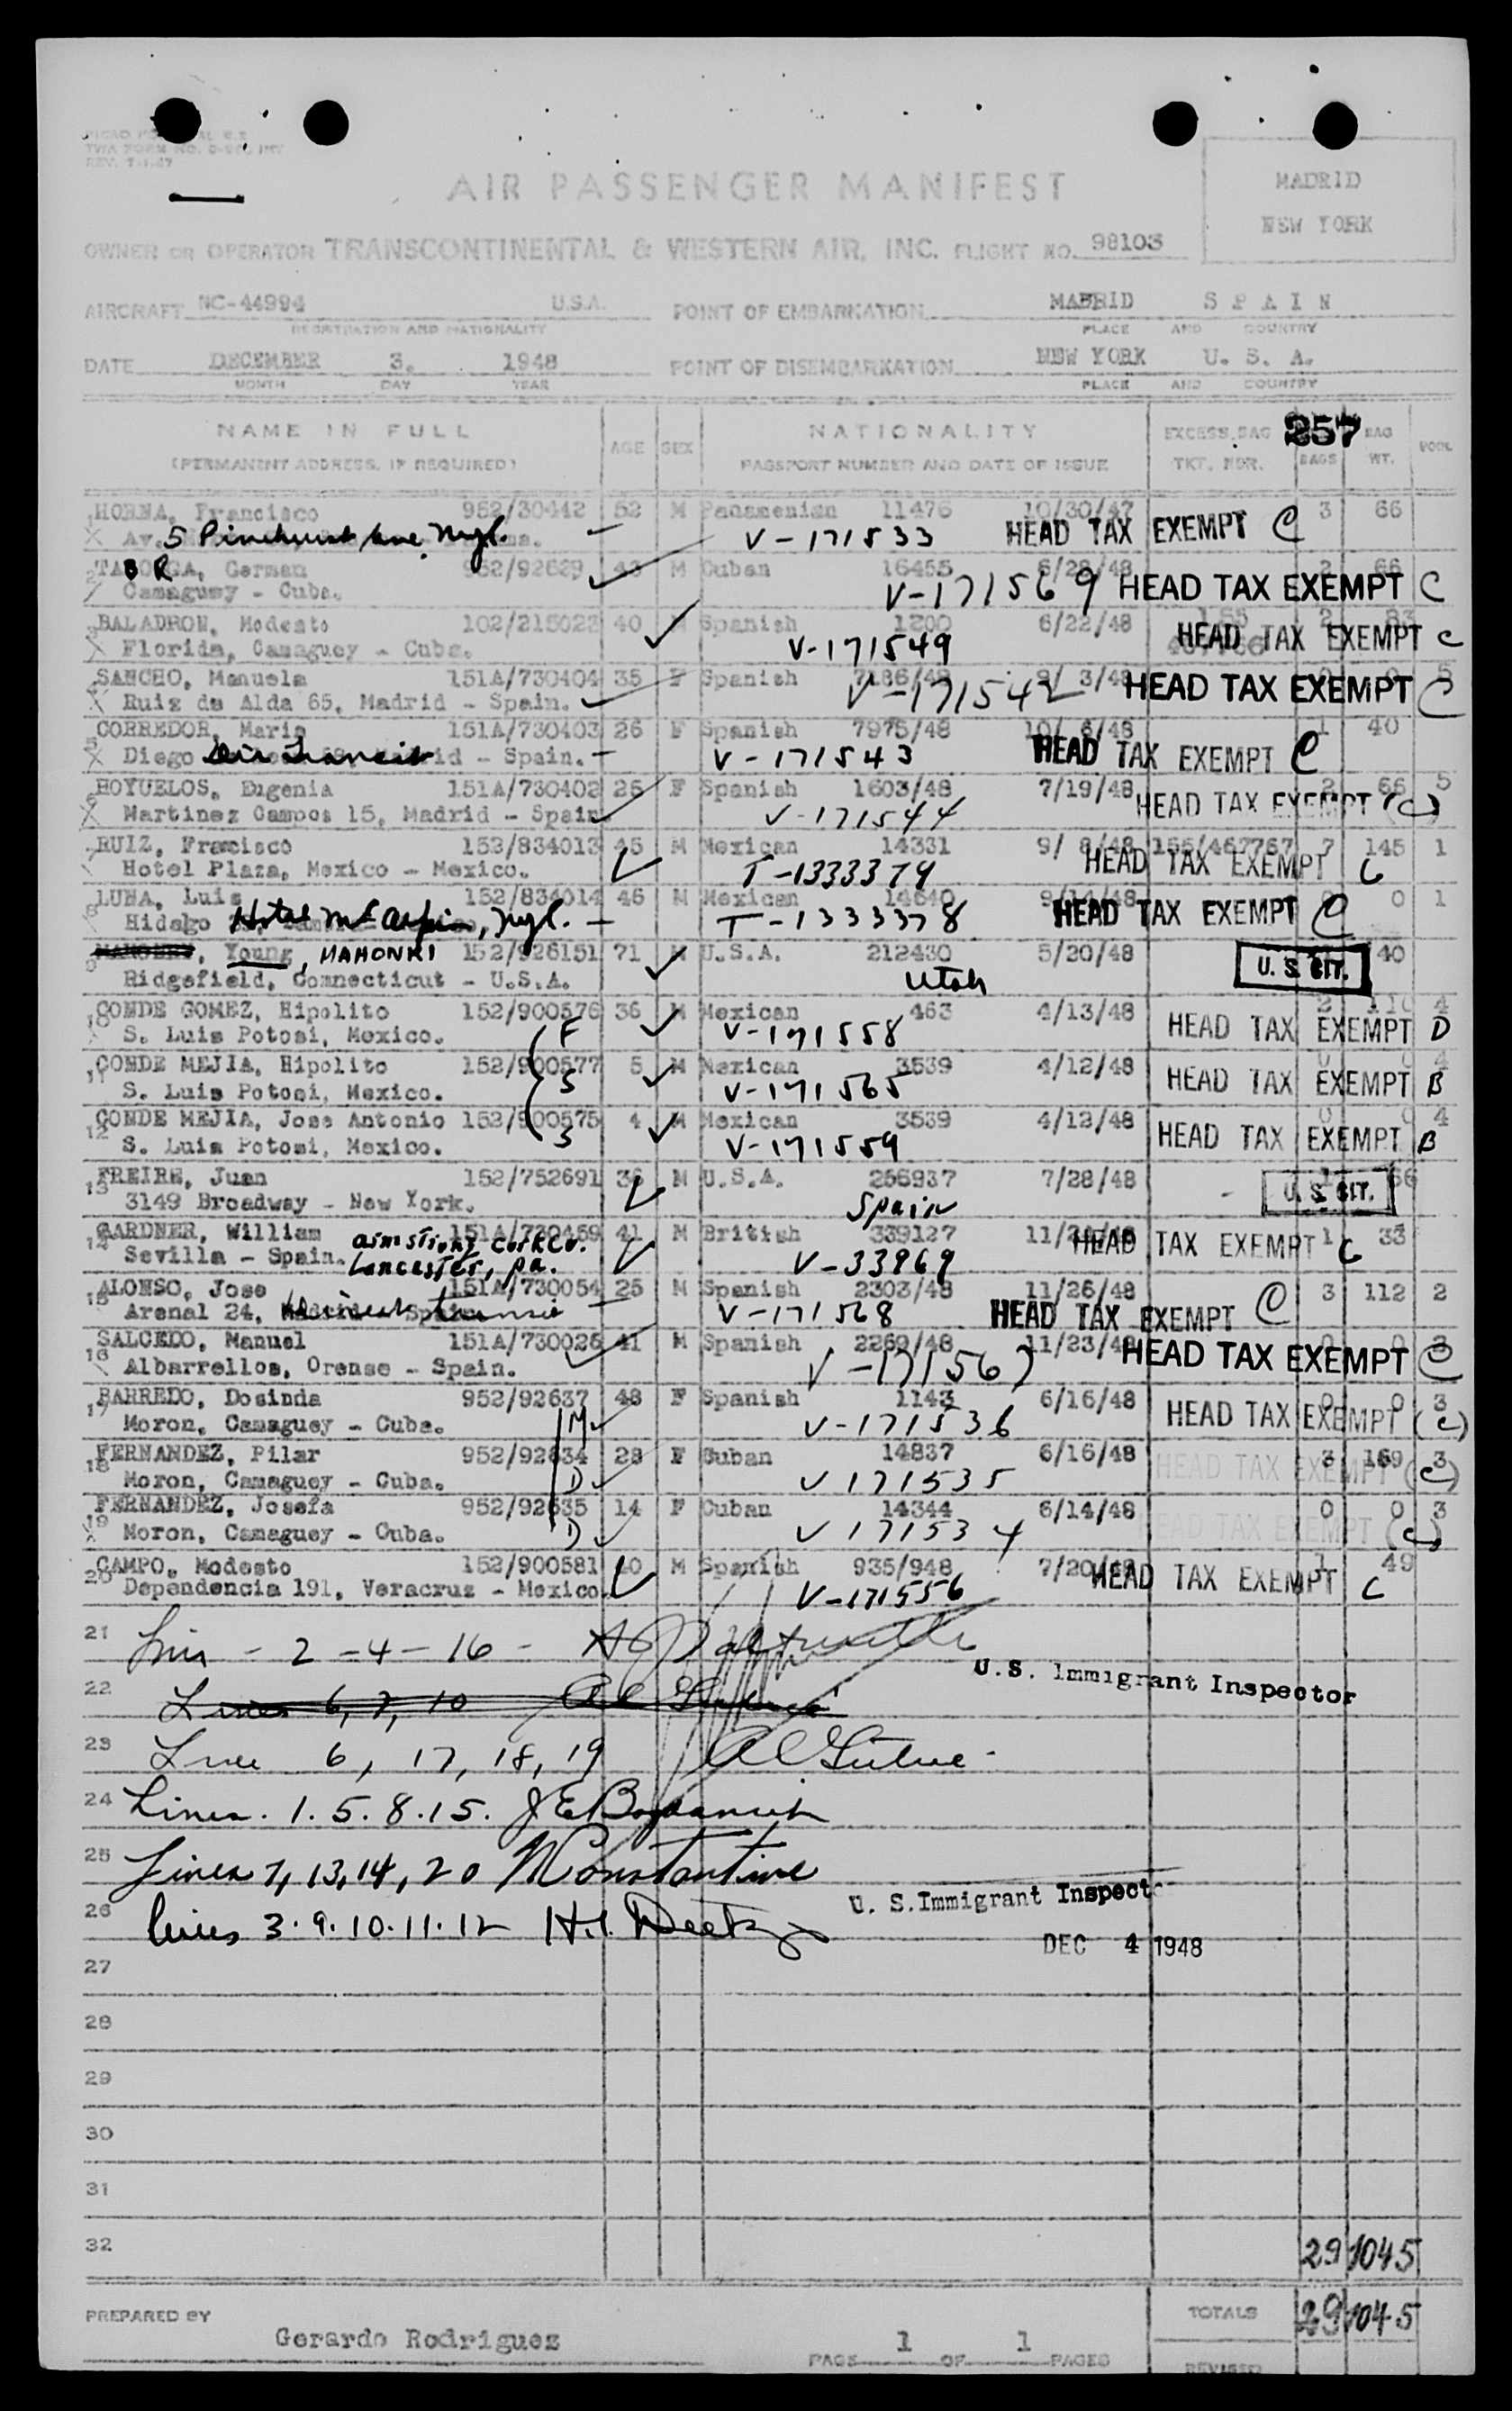 TWA FORM NO.
REV. 7-1-47
AIR PASSENGER MANIFEST
MADRID
NEW YORK
OWNER OR OPERATOR TRANSCONTINENTAL & WESTERN AIR, INC. FLIGHT NO. 98103
AIRCRAFT NC-44994 U.S.A. POINT OF EMBARKATION MADRID SPAIN
REGISTRATION AND NATIONALITY PLACE AND COUNTRY
DATE DECEMBER 3, 1948 POINT OF DISEMBARKATION NEW YORK U. S. A.
MONTH DAY YEAR PLACE AND COUNTRY
NAME IN FULL AGE SEX NATIONALITY EXCESS BAG 257 BAG POOL
(PERMANENT ADDRESS, IF REQUIRED) PASSPORT NUMBER AND DATE OF ISSUE TKT. NBR. BAGS WT.
1 HORNA, Francisco 952/30442 52 M Panamenian 11476 10/30/47 3 66
Av. 5 Pinehurst Ave nyc. V-171533 HEAD TAX EXEMPT C
2 TABORGA, German BR 952/92629 43 M Cuban 16455 6/28/48 2 66
Camaguey - Cuba. V-171569 HEAD TAX EXEMPT C
3 BALADRON, Modesto 102/215022 40 M Spanish 1200 6/22/48 155 2 83
Florida, Camaguey - Cuba. V-171549 HEAD TAX EXEMPT C
4 SANCHO, Manuela 151A/730404 35 F Spanish 7186/48 9/ 3/48 0 0 5
Ruiz de Alda 65, Madrid - Spain. V-171542 HEAD TAX EXEMPT C
5 CORREDOR, Maria 151A/730403 26 F Spanish 7975/48 10/ 6/48 1 40
Diego Air Transit Madrid - Spain. V-171543 HEAD TAX EXEMPT C
6 HOYUELOS, Eugenia 151A/730402 26 F Spanish 1603/48 7/19/48 2 66 5
Martinez Campos 15, Madrid - Spain V-171544 HEAD TAX EXEMPT (C)
7 RUIZ, Francisco 152/834013 45 M Mexican 14331 9/ 8/48 155/467767 7 145 1
Hotel Plaza, Mexico - Mexico. T-1333379 HEAD TAX EXEMPT C
8 LUNA, Luis 152/834014 46 M Mexican 14640 9/14/48 0 0 1
Hidalgo Hotel McAlpin, nyc. T-1333378 HEAD TAX EXEMPT C
9 Young, MAHONRI 152/926151 71 M U.S.A. 212430 5/20/48 U. S. CIT. 40
Ridgefield, Connecticut - U.S.A. Utah
10 CONDE GOMEZ, Hipolito 152/900576 36 M Mexican 463 4/13/48 2 110 4
S. Luis Potosi, Mexico. F V-171558 HEAD TAX EXEMPT D
11 CONDE MEJIA, Hipolito 152/900577 5 M Mexican 3539 4/12/48 0 0 4
S. Luis Potosi, Mexico. S V-171565 HEAD TAX EXEMPT B
12 CONDE MEJIA, Jose Antonio 152/900575 4 M Mexican 3539 4/12/48 0 0 4
S. Luis Potosi, Mexico. S V-171559 HEAD TAX EXEMPT B
13 FREIRE, Juan 152/752691 36 M U.S.A. 256937 7/28/48 1 66
3149 Broadway - New York. Spain - U. S. CIT.
14 GARDNER, William 151A/730459 41 M British 339127 11/24/48 1 33
Sevilla - Spain. Armstrong Cork Co. Lancaster, Pa. V-33969 HEAD TAX EXEMPT C
15 ALONSO, Jose 151A/730054 25 M Spanish 2303/48 11/26/48 3 112 2
Arenal 24, Madrid - Spain V-171568 HEAD TAX EXEMPT C
16 SALCEDO, Manuel 151A/730026 41 M Spanish 2269/48 11/23/48 0 0 3
Albarrellos, Orense - Spain. V-171567 HEAD TAX EXEMPT C
17 BARREDO, Dosinda 952/92637 48 F Spanish 1143 6/16/48 0 0 3
Moron, Camaguey - Cuba. M V-171536 HEAD TAX EXEMPT (C)
18 FERNANDEZ, Pilar 952/92634 28 F Cuban 14837 6/16/48 3 169 3
Moron, Camaguey - Cuba. D V 171535 HEAD TAX EXEMPT (C)
19 FERNANDEZ, Josefa 952/92635 14 F Cuban 14344 6/14/48 0 0 3
Moron, Camaguey - Cuba. D V 171534 HEAD TAX EXEMPT (C)
20 CAMPO, Modesto 152/900581 40 M Spanish 935/948 7/20/48 1 49
Dependencia 191, Veracruz - Mexico. V-171556 HEAD TAX EXEMPT C
21 Lines - 2 - 4 - 16 -
U.S. Immigrant Inspector
22 Lines 6, 7, 10
23 Lines 6, 17, 18, 19
24 Lines. 1. 5. 8. 15.
25 Lines 7, 13, 14, 20 M Constantine
U. S. Immigrant Inspector
26 lines 3. 9. 10. 11. 12
DEC 4 1948
27
28
29
30
31
32 29 1045
TOTALS 29 1045
PREPARED BY Gerardo Rodriguez
PAGE 1 OF 1 PAGES
REVISED